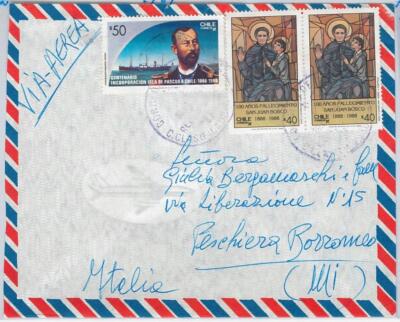 VIA-AEREA
$50
CHILE
CENTENARIO
INCORPORACION ISLA DE PASCUA A CHILE 1888 1988
100 AÑOS FALLECIMIENTO
SAN JUAN BOSCO
CHILE 1888 - 1988 $40
100 AÑOS FALLECIMIENTO
SAN JUAN BOSCO
CHILE 1888 - 1988 $40
CORREOS
Señora
Giulia Bergamaschi e fam
via Liberazione N°15
Peschiera Borromeo
(Mi)
Italia